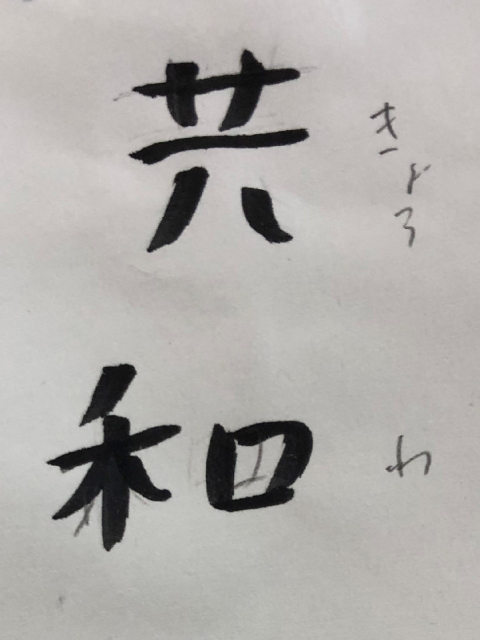 共和
きょうわ